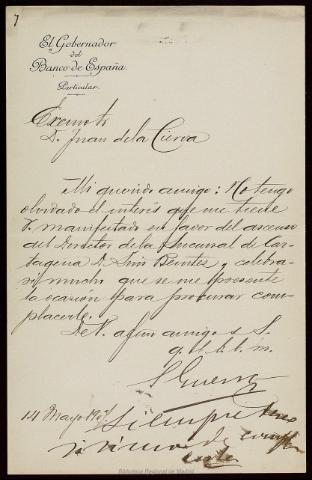 7
El Gobernador
del
Banco de España
Particular
Excmo Sr
D. Juan de la Cierva
Mi querido amigo: No tengo
olvidado el interés que me tiene
V. manifestado en favor del ascenso
del Director de la Sucursal de Car-
tagena D. Luis Benitez, y celebra-
ré mucho que se me presente
la ocasión para procurar com-
placerle.
De V. afmo amigo s. S.
q. b. s. m.
J Guerra
14 Mayo 907
Siempre
Biblioteca Regional de Madrid